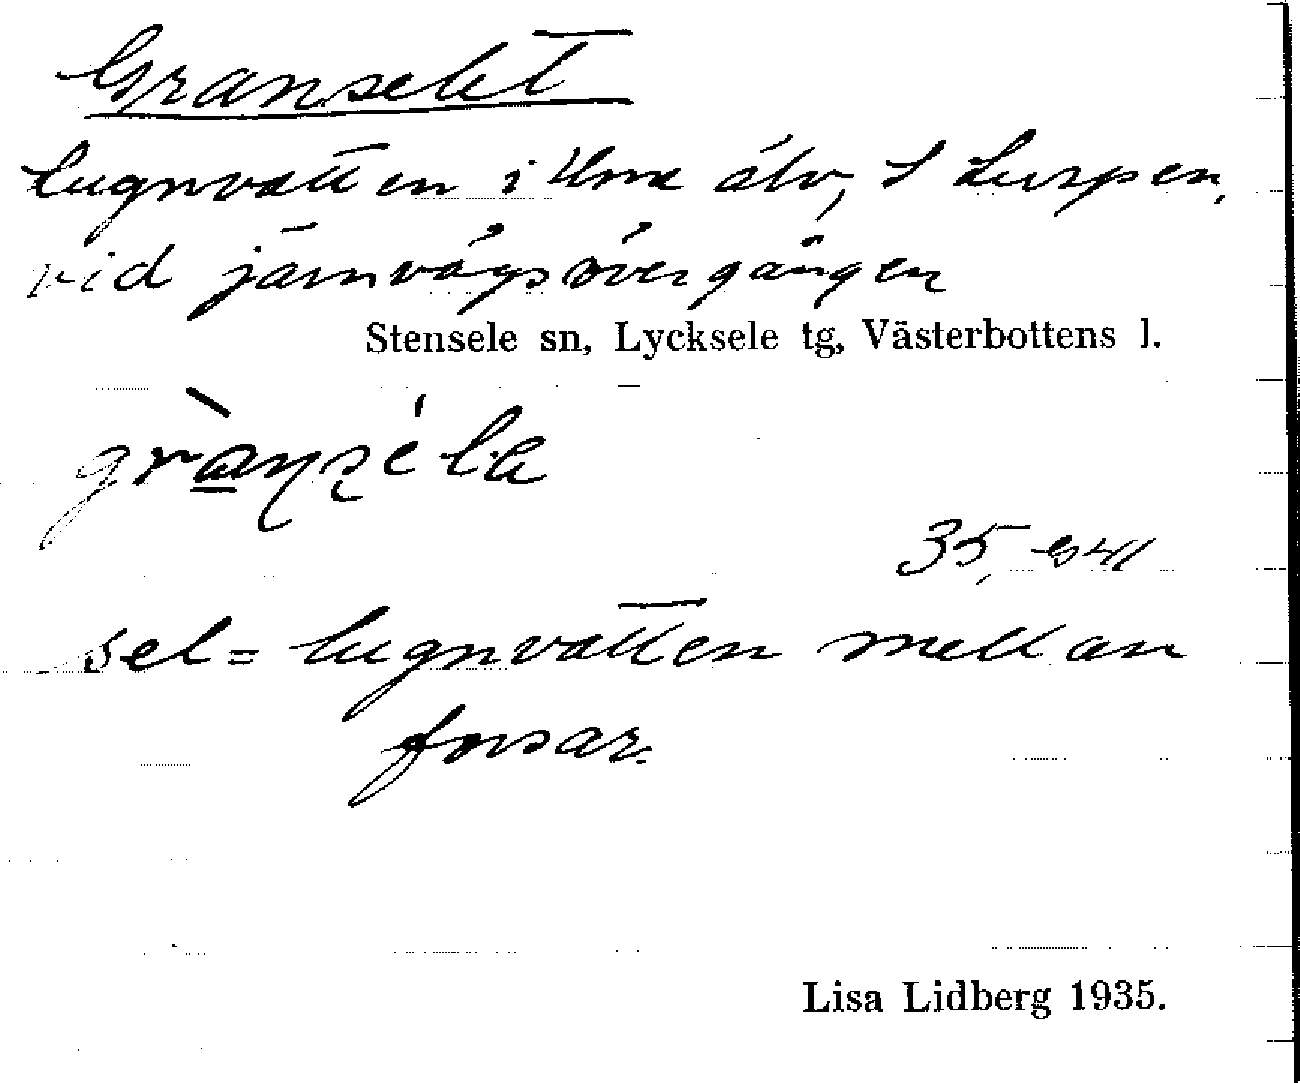 Granselet
lugnvatten i Ume älv, S Luspen,
vid järnvägsövergången
Stensele sn, Lycksele tg, Västerbottens l.
sel = lugnvatten mellan
forsar.
Lisa Lidberg 1935.